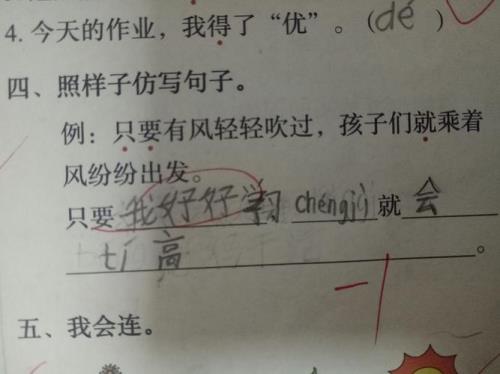 4. 今天的作业，我得了“优”。(dé)
四、照样子仿写句子。
例：只要有风轻轻吹过，孩子们就乘着
风纷纷出发。
只要 我好好学习 chéngjì 就 会
tí 高 。
-1
五、我会连。